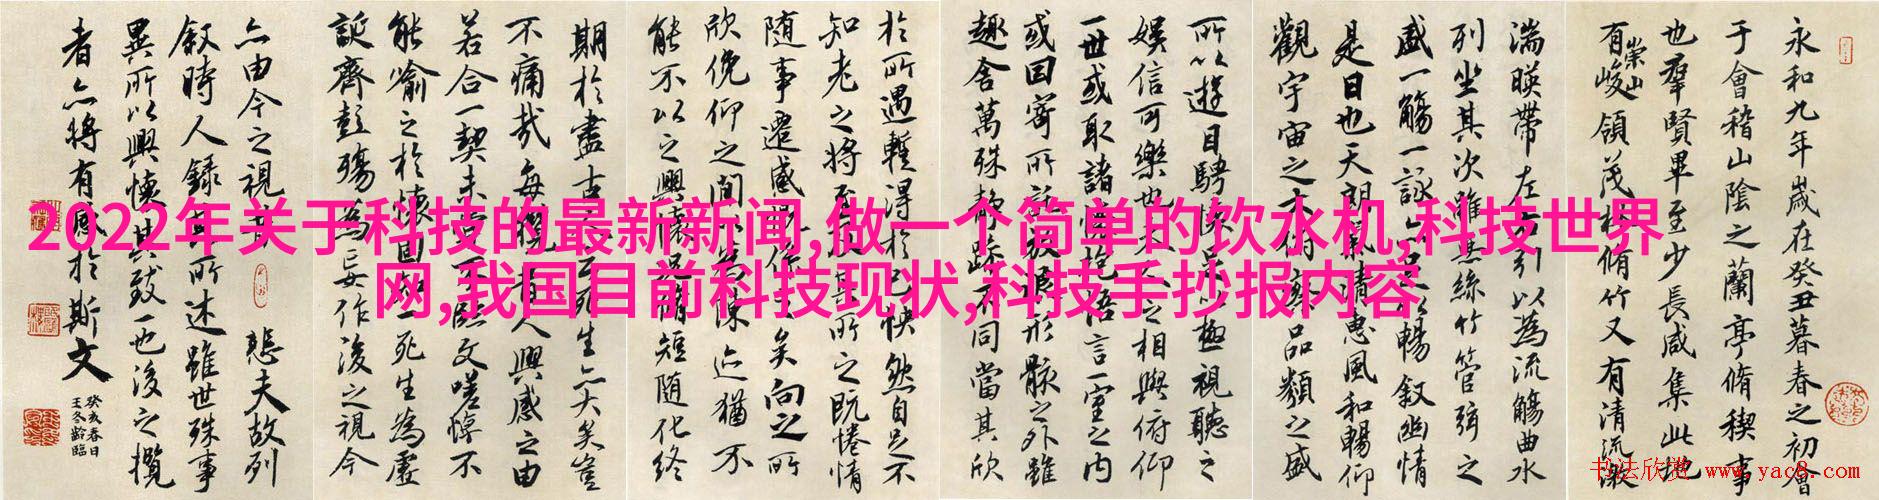 2022年关于科技的最新新闻,做一个简单的饮水机,科技世界
网,我国目前科技现状,科技手抄报内容
永和九年歲在癸丑暮春之初會
于會稽山陰之蘭亭脩稧事
也羣賢畢至少長咸集此地
有崇山峻領茂林脩竹又有清流激
湍暎帶左右引以為流觴曲水
列坐其次雖無絲竹管弦之
盛一觴一詠亦足以暢敘幽情
是日也天朗氣清惠風和暢仰
觀宇宙之大俯察品類之盛
所以遊目騁懷足以極視聽之
娛信可樂也夫人之相與俯仰
一世或取諸懷抱悟言一室之內
或因寄所託放浪形骸之外雖
趣舍萬殊靜躁不同當其欣
於所遇暫得於己快然自足不
知老之將至及其所之既惓情
随事遷感慨係之矣向之所
欣俛仰之間以為陳迹猶不
能不以之興懷況脩短随化終
期於盡古人云死生亦大矣豈
不痛哉每攬昔人興感之由
若合一契未嘗不臨文嗟悼不
能喻之於懷固知一死生為虛
誕齊彭殤為妄作後之視今
亦由今之視昔 悲夫故列
叙時人錄其所述雖世殊事
異所以興懷其致一也後之攬
者亦將有感於斯文
癸亥春日
王冬齡臨
书法欣赏 www.yac8.com